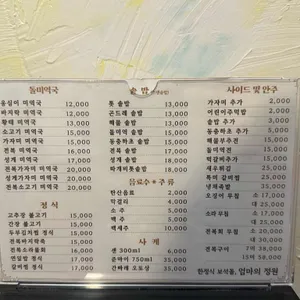 돌미역국
옹심이 미역국 12,000
바지락 미역국 12,000
황태 미역국 13,000
소고기 미역국 15,000
전복 미역국 16,000
성게 미역국 17,000
전복가자미 미역국 20,000
성게가자미 미역국 20,000
전복조개 미역국 20,000
정식
고추장 불고기 15,000
간장 불고기 15,000
두부김치찜 정식 15,000
전복바지락죽 15,000
전복소라물회 16,000
갈비찜 정식 17,000
솥밥
톳 솥밥 13,000
곤드레 솥밥 13,000
해물 솥밥 15,000
돌미역 솥밥 15,000
동충하초 솥밥 15,000
전복 솥밥 17,000
성게 솥밥 18,000
음료수 주류
탄산음료 2,000
막걸리 4,000
소주 5,000
맥주 5,000
백세주 10,000
사케
캔 300ml 6,000
준마이 750ml 35,000
간바레 오토상 35,000
사이드 및 안주
가자미 추가 2,000
어린이주먹밥 2,000
솥밥 추가 3,000
동충하초 추가 5,000
해물부추전 15,000
돌미역전 15,000
떡갈비추가 15,000
새우튀김 25,000
특미 갈비찜 35,000
냉채족발 35,000
오징어 무침 소 25,000
대 35,000
소라 무침 소 25,000
대 35,000
전복회 무침 소 30,000
대 50,000
전복구이 7미 38,000
15미 58,000
엄마의 정원